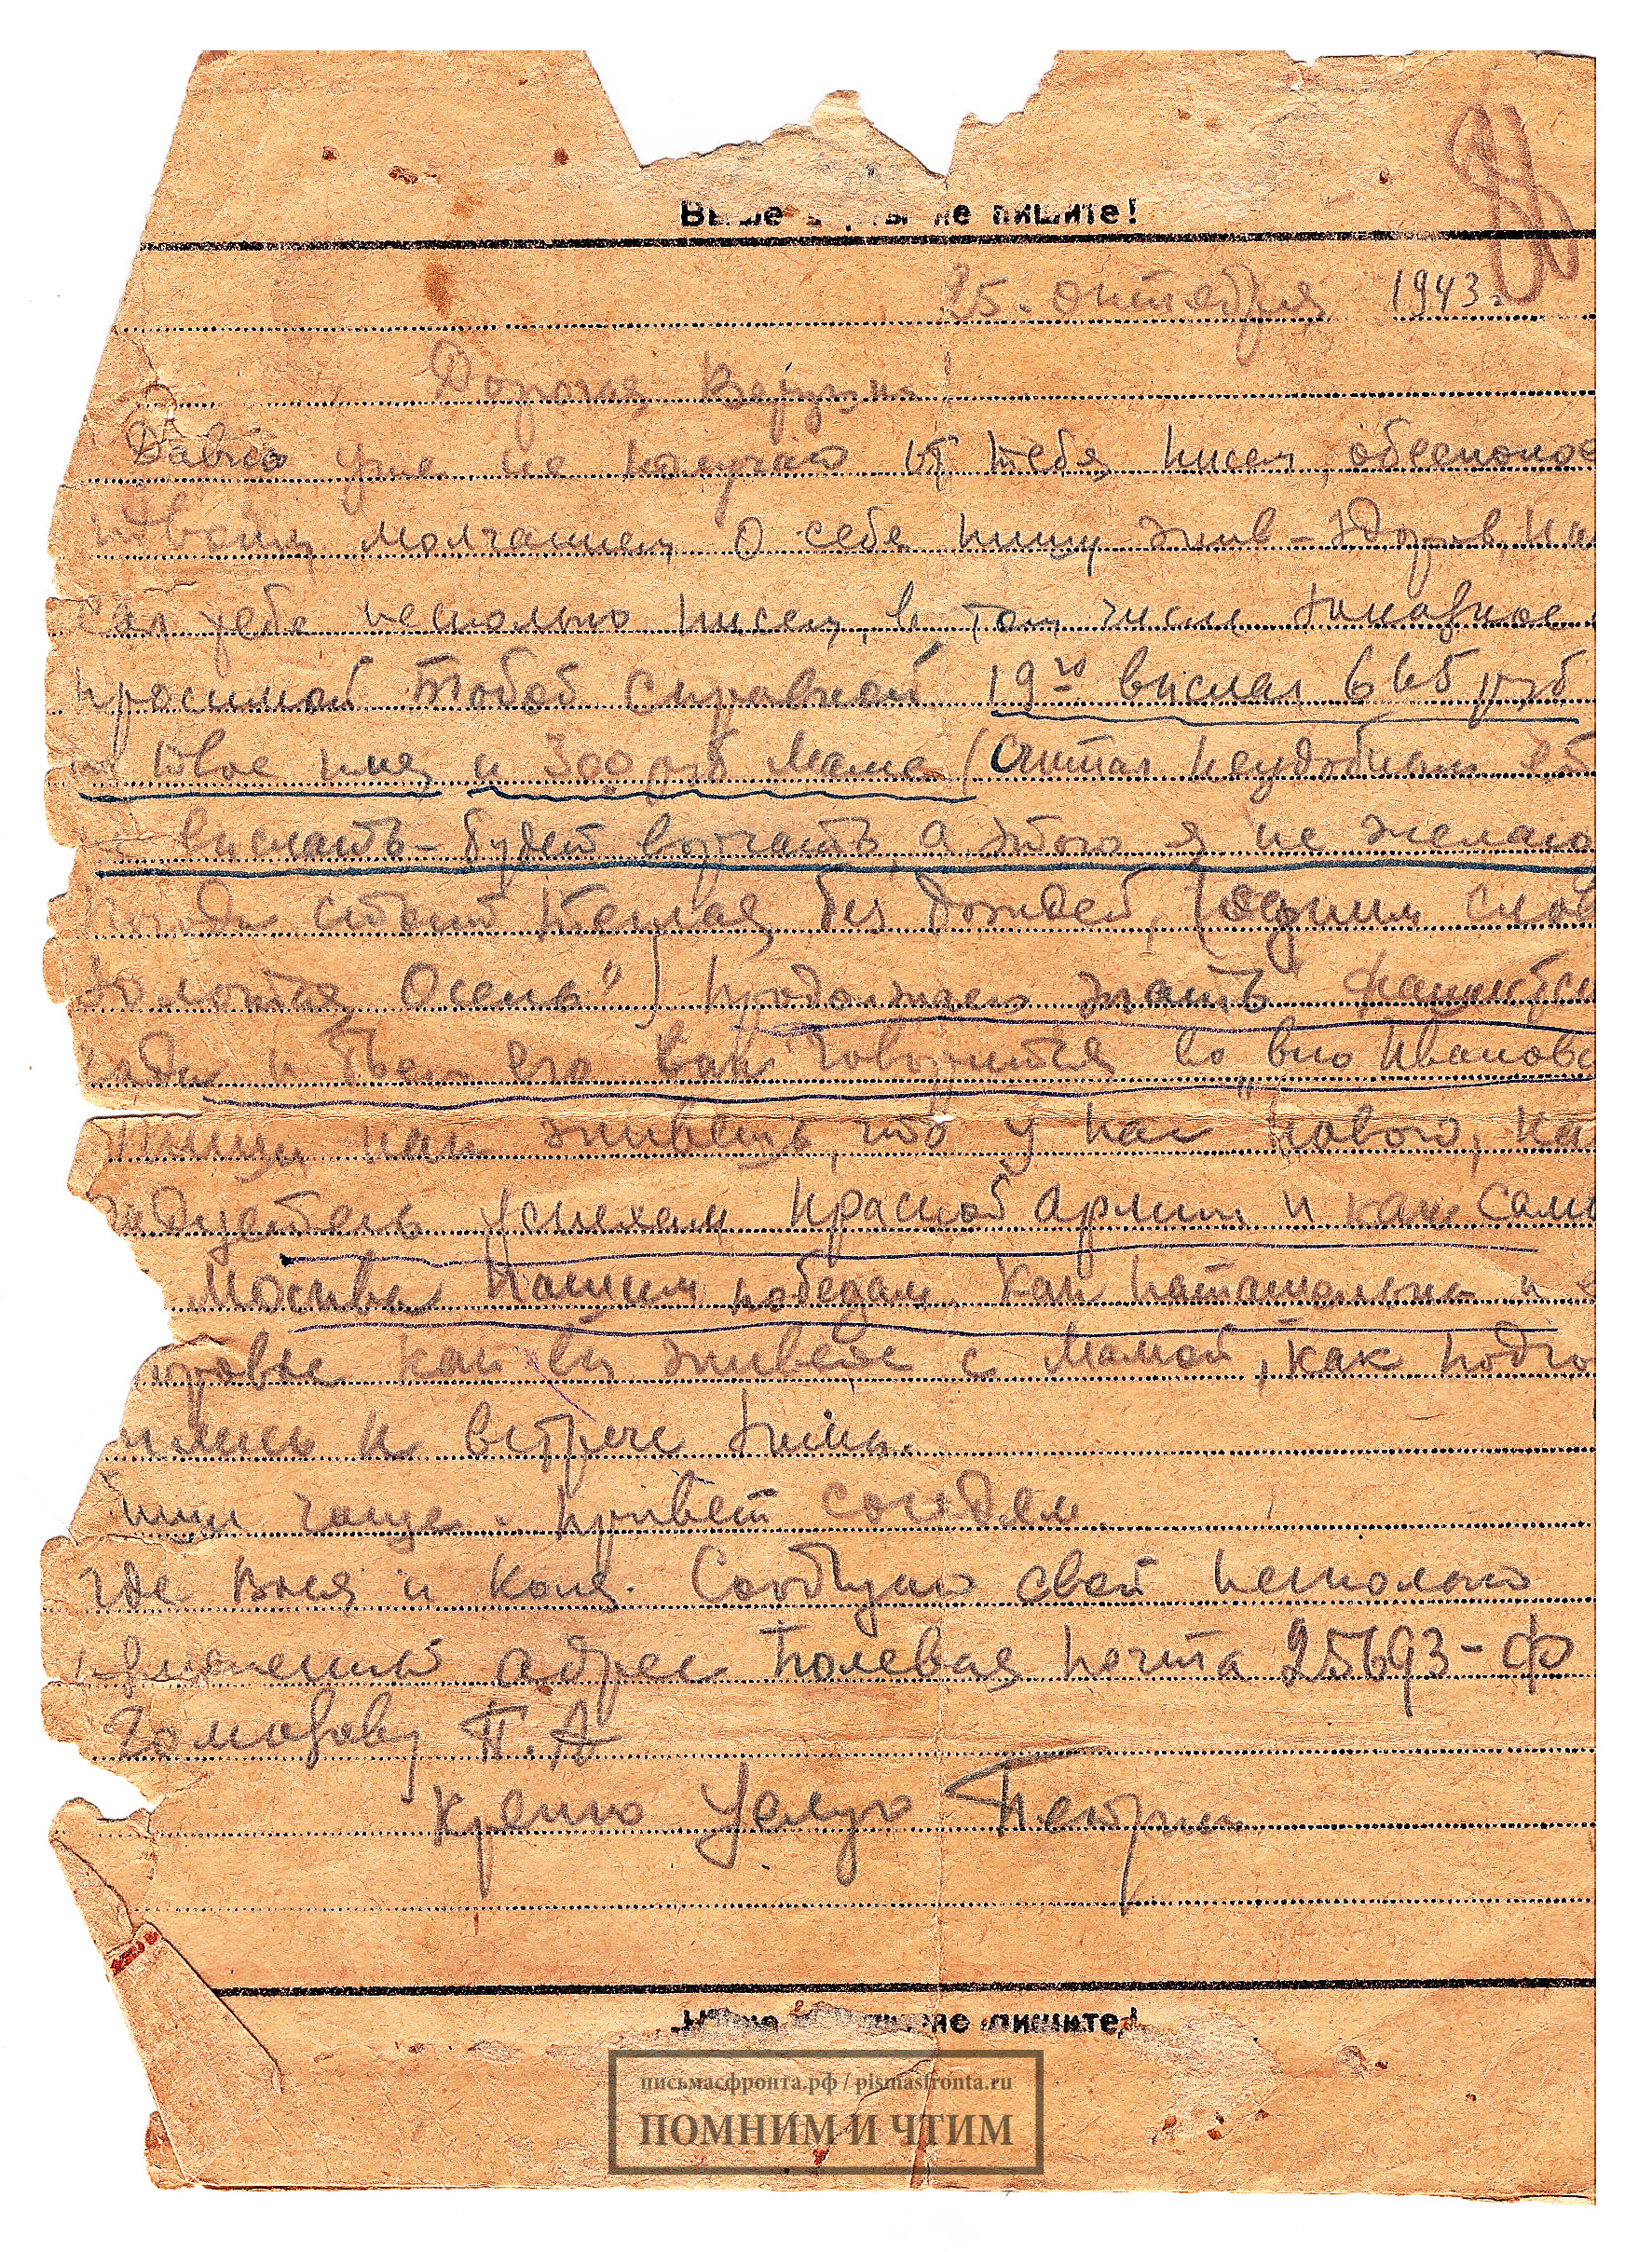 Выше черты не пишите!
25. октября 1943 г.
Дорогая Верузна!
Давно уже не получаю от тебя писем, обеспокое
твоим молчанием О себе пишу жив-здоров. Пи
сал тебе несколько писем, в том числе заказное с
просимой Тобой справкой 19го выслал 665 руб
на твое имя и 300 руб Маме (Считал неудобным ей
не выслать - будет ворчать, а этого я не желаю
Погода стоит теплая, без дождей, (одним слов
Золотая Осень") Продолжаем гнать
гада и бьем его как говорится во Ивановс
Пиши как живешь, что у нас нового, ка
радуетесь успехам Красной Армии и как
Москва нашим победам. Как Наташенька и
здоровье как вы живете с Мамой, как подго
вились к встрече зимы.
Пиши чаще. Привет соседям.
Где Вася и Коля. Сообщаю свой несколько
измененный адрес Полевая почта 25693-Ф
Гоморову П.А
Крепко Целую Петр
Ниже черты не пишите!
письмасфронта.рф / pismasfronta.ru
ПОМНИМ И ЧТИМ